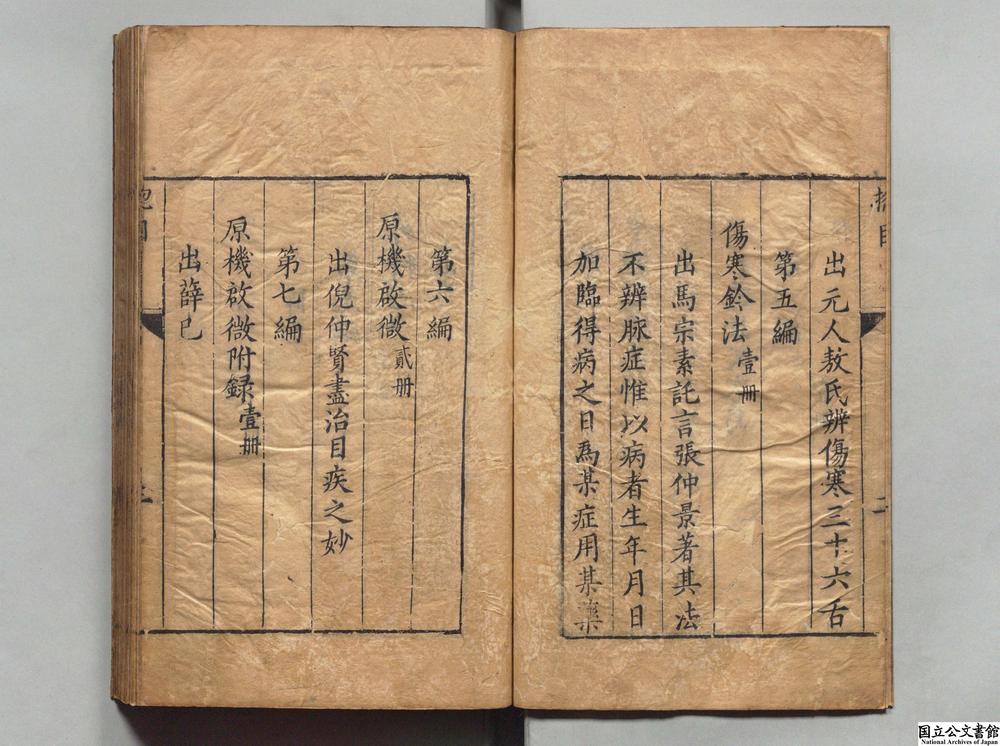 出元人敖氏辨傷寒三十六舌
第五編
傷寒鈐法 壹冊
出馬宗素託言張仲景著其法
不辨脉症惟以病者生年月日
加臨得病之日爲某症用某藥
第六編
原機啟微 貳册
出倪仲賢盡治目疾之妙
第七編
原機啟微附録 壹冊
出薛己
国立公文書館
National Archives of Japan